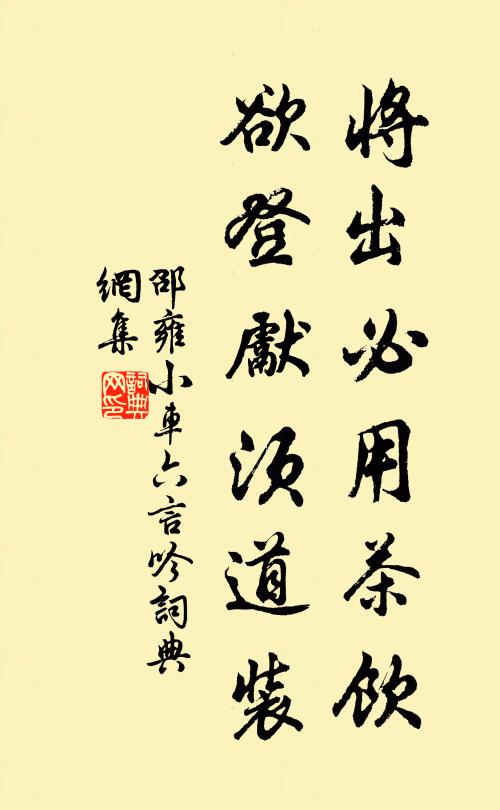 將出必用茶飲
欲登獻須道裝
邵雍小車六言吟詞典
網集
詞典
网印